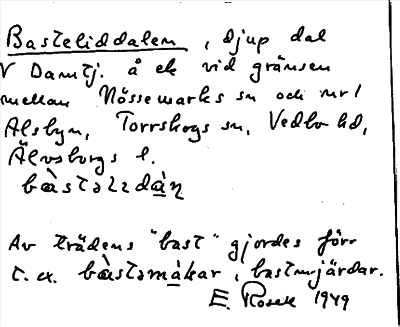 Basteliddalen, djup dal
V Damtj. å ek vid gränsen
mellan Nössemarks sn och nr 1
Alsbyn, Torrskogs sn, Vedbo hd,
Älvsborgs l.
bàstəlɩdàṇ
Av trädens "bast" gjordes förr
t. ex. bàstəmàkar, bastmjärdar.
E. Rosell 1949